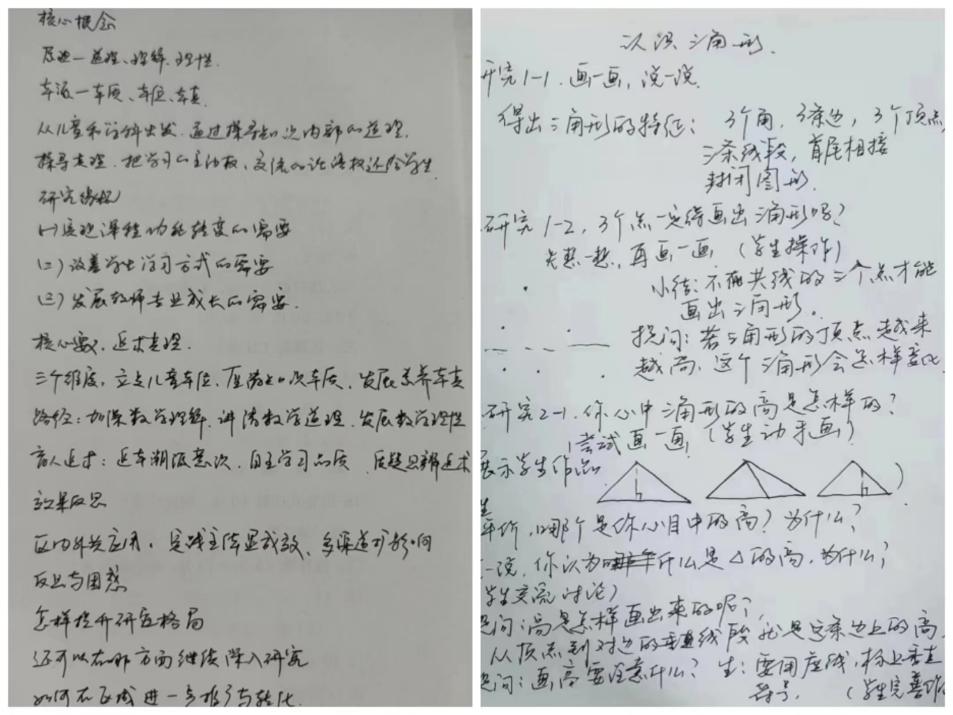 核心概念
道理、理解、理性
从儿童和学科出发,通过探寻知识内部的道理,
探寻真理,把学习的主动权、交流的话语权还给学生
研究缘起
(一)实现课程功能转变的需要
(二)改善学生学习方式的需要
(三)发展教师专业成长的需要
核心要义,追求真理
三个维度,立足儿童本位、发展素养
路径:加深数学理解、讲清数学道理、发展数学理性
育人追求:自主学习品质
效果反思
区内外共应用,实践主阵显成效、多渠道扩影响
反思与困惑
怎样提升研究格局
还可以在哪方面继续深入研究
如何在区域进一步推广与转化
认识三角形
研究1-1.画一画,说一说
得出三角形的特征:3个角,3条边,3个顶点
三条线段,首尾相接
封闭图形.
研究1-2,3个点一定能画出三角形吗?
先想一想,再画一画(学生操作)
小结:不在共线的三个点才能
画出三角形.
提问:若三角形的顶点越来
越高,这个三角形会怎样变化
研究2-1.你心中三角形的高是怎样的?
尝试画一画(学生动手画)
展示学生作品
评价,哪个是你心目中的高?为什么?
说,你认为什么是△的高,为什么?
学生交流讨论)
问:高是怎样画出来的呢?
从顶点到对边的垂直线段就是这条边上的高
问:画高要注意什么?生:要用虚线,标上垂直
符号.(学生完善作